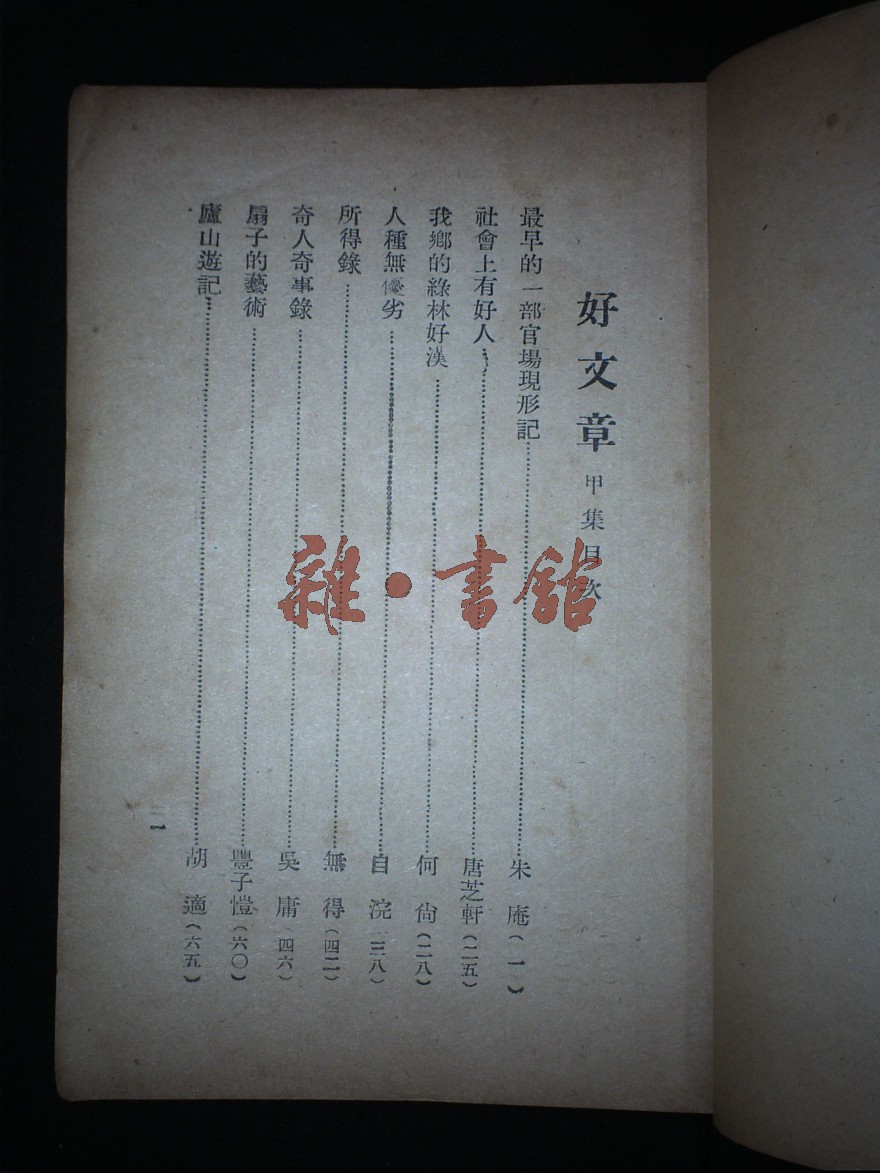 好文章 甲集目次
最早的一部官場現形記……朱庵(一)
社會上有好人……唐芝軒(二五)
我鄉的綠林好漢……何尙(二八)
人種無優劣……自浣(三八)
所得錄……無得(四二)
奇人奇事錄……吳庸(四六)
扇子的藝術……豐子愷(六〇)
廬山遊記……胡適(六五)
雜·書館